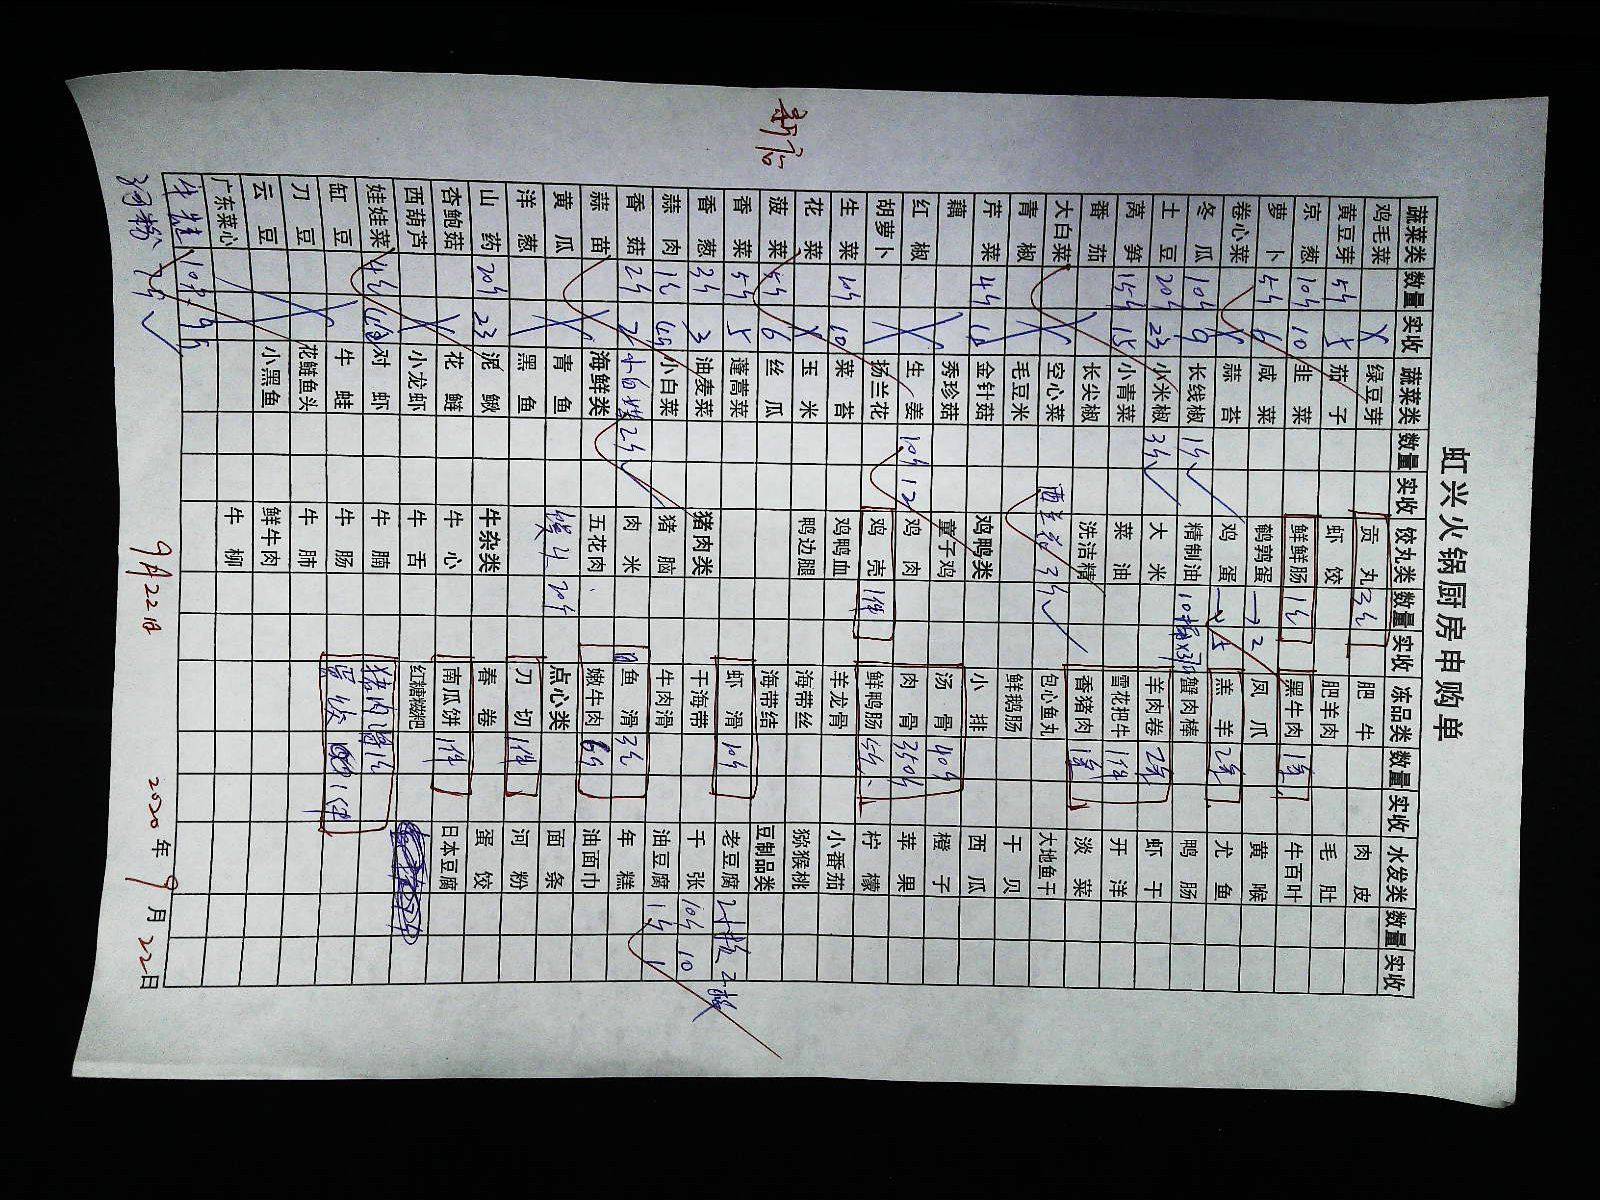 虹兴火锅厨房申购单
新店
蔬菜类 数量 实收 蔬菜类 数量 实收 饺丸类 数量 实收 冻品类 数量 实收 水发类 数量 实收
鸡毛菜 绿豆芽 贡丸 肥牛 肉皮
黄豆芽 5斤 5 茄子 虾饺 肥羊肉 毛肚
京葱 10斤 10 韭菜 鲜鲜肠 黑牛肉 牛百叶
萝卜 5斤 6 咸菜 鹌鹑蛋 一 2 凤爪 黄喉
卷心菜 蒜苔 鸡蛋 羔羊 尤鱼
冬瓜 10斤 9 长线椒 1斤 精制油 蟹肉棒 鸭肠
土豆 20斤 23 小米椒 3斤 大米 羊肉卷 虾干
莴笋 15斤 15 小青菜 菜油 雪花把牛 1件 开洋
番茄 长尖椒 洗洁精 香猪肉 淡菜
大白菜 空心菜 西兰花 3斤 包心鱼丸 大地鱼干
青椒 毛豆米 鲜鹅肠 干贝
芹菜 4斤 金针菇 鸡鸭类 小排 西瓜
藕 秀珍菇 童子鸡 汤骨 40斤 橙子
红椒 生姜 10斤 12 鸡肉 肉骨 350斤 苹果
胡萝卜 扬兰花 鸡壳 1件 鲜鸭肠 柠檬
生菜 10斤 10 菜苔 鸡鸭血 羊龙骨 小番茄
花菜 玉米 鸭边腿 海带丝 猕猴桃
菠菜 5斤 6 丝瓜 海带结 豆制品类
香菜 5斤 5 蓬蒿菜 虾滑 10斤 老豆腐 2板 2板
香葱 3斤 3 油麦菜 猪肉类 干海带 千张 10斤 10
蒜肉 小白菜 猪脑 牛肉滑 油豆腐 1斤 1
香菇 2斤 2斤 2斤 肉米 鱼滑 年糕
蒜苗 海鲜类 五花肉 嫩牛肉 油面巾
黄瓜 青鱼 20斤 点心类 面条
洋葱 黑鱼 刀切 1件 河粉
山药 20斤 23 泥鳅 牛杂类 春卷 蛋饺
杏鲍菇 花鲢 牛心 南瓜饼 1件 日本豆腐
西葫芦 小龙虾 牛舌 红糖糍粑
娃娃菜 对虾 牛腩
缸豆 牛蛙 牛肠 1件
刀豆 花鲢鱼头 牛肺
云豆 小黑鱼 鲜牛肉
广东菜心 牛柳
9月22日 2020年9月22日